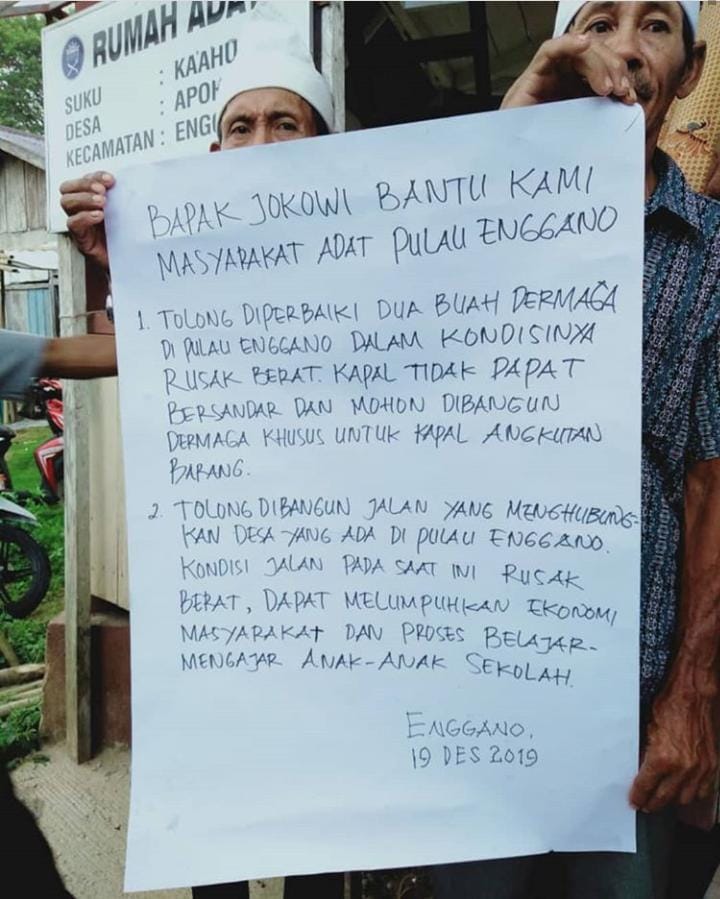 RUMAH ADA
SUKU : KAAHO
DESA : APOH
KECAMATAN : ENGG
BAPAK JOKOWI BANTU KAMI
MASYARAKAT ADAT PULAU ENGGANO
1. TOLONG DIPERBAIKI DUA BUAH DERMAGA
DI PULAU ENGGANO DALAM KONDISINYA
RUSAK BERAT. KAPAL TIDAK DAPAT
BERSANDAR DAN MOHON DIBANGUN
DERMAGA KHUSUS UNTUK KAPAL ANGKUTAN
BARANG.
2. TOLONG DIBANGUN JALAN YANG MENGHUBUNG-
KAN DESA YANG ADA DI PULAU ENGGANO.
KONDISI JALAN PADA SAAT INI RUSAK
BERAT, DAPAT MELUMPUHKAN EKONOMI
MASYARAKAT DAN PROSES BELAJAR-
MENGAJAR ANAK-ANAK SEKOLAH.
ENGGANO,
19 DES 2019